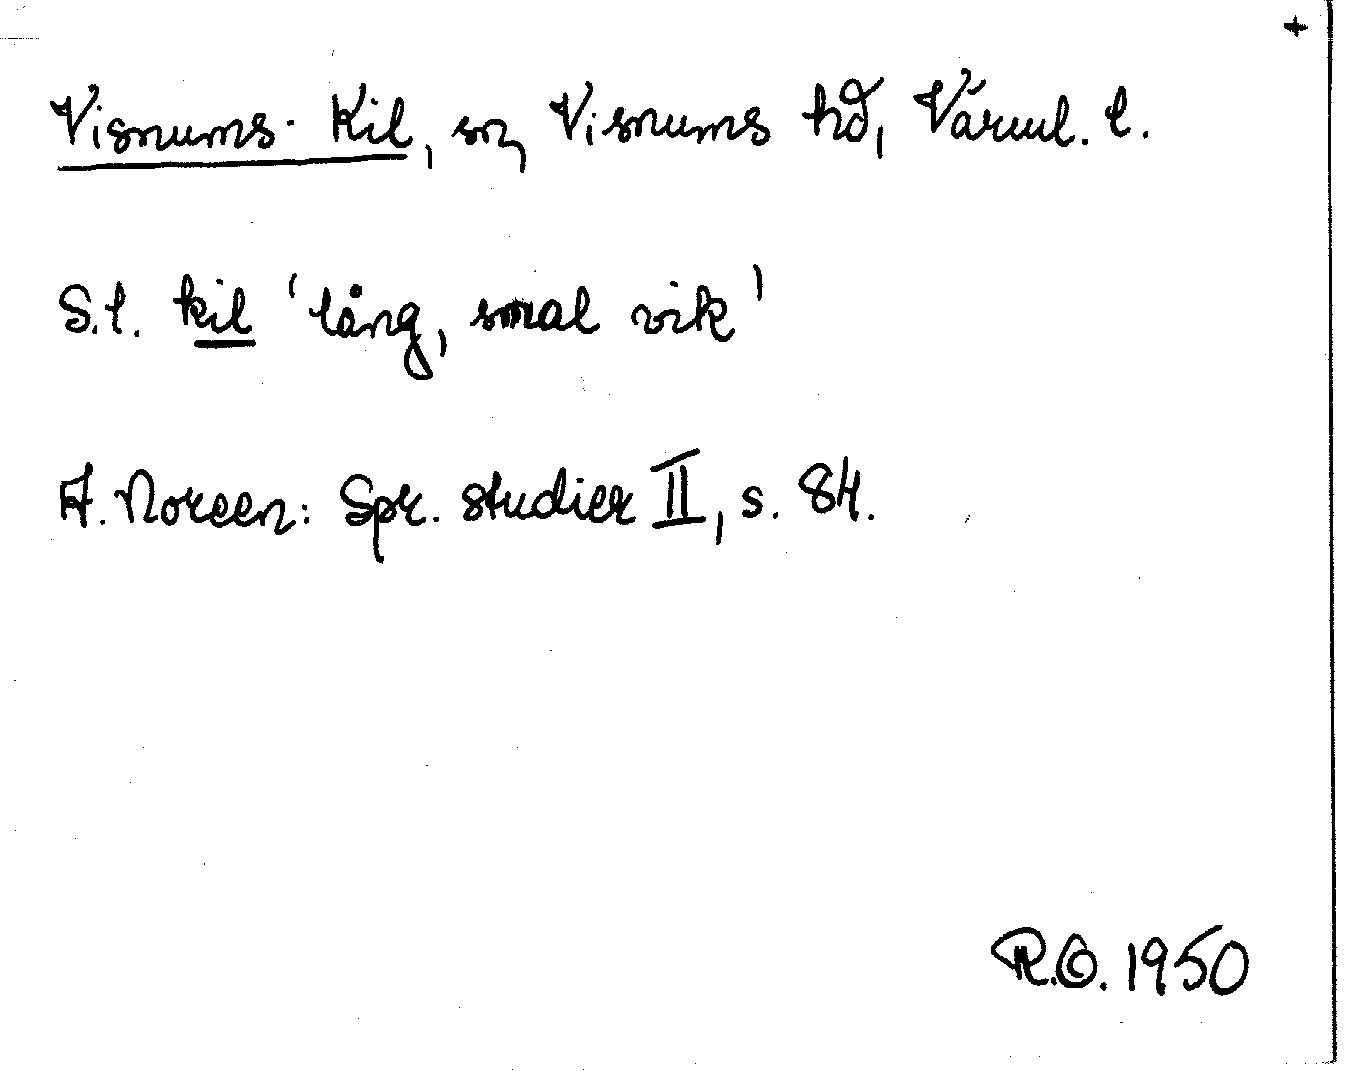 Visnums-Kil, sn, Visnums hd, Värml. l.
S.l. kil 'lång, smal vik'
A. Noreen: Spr. studier II, s. 84.
R.O. 1950